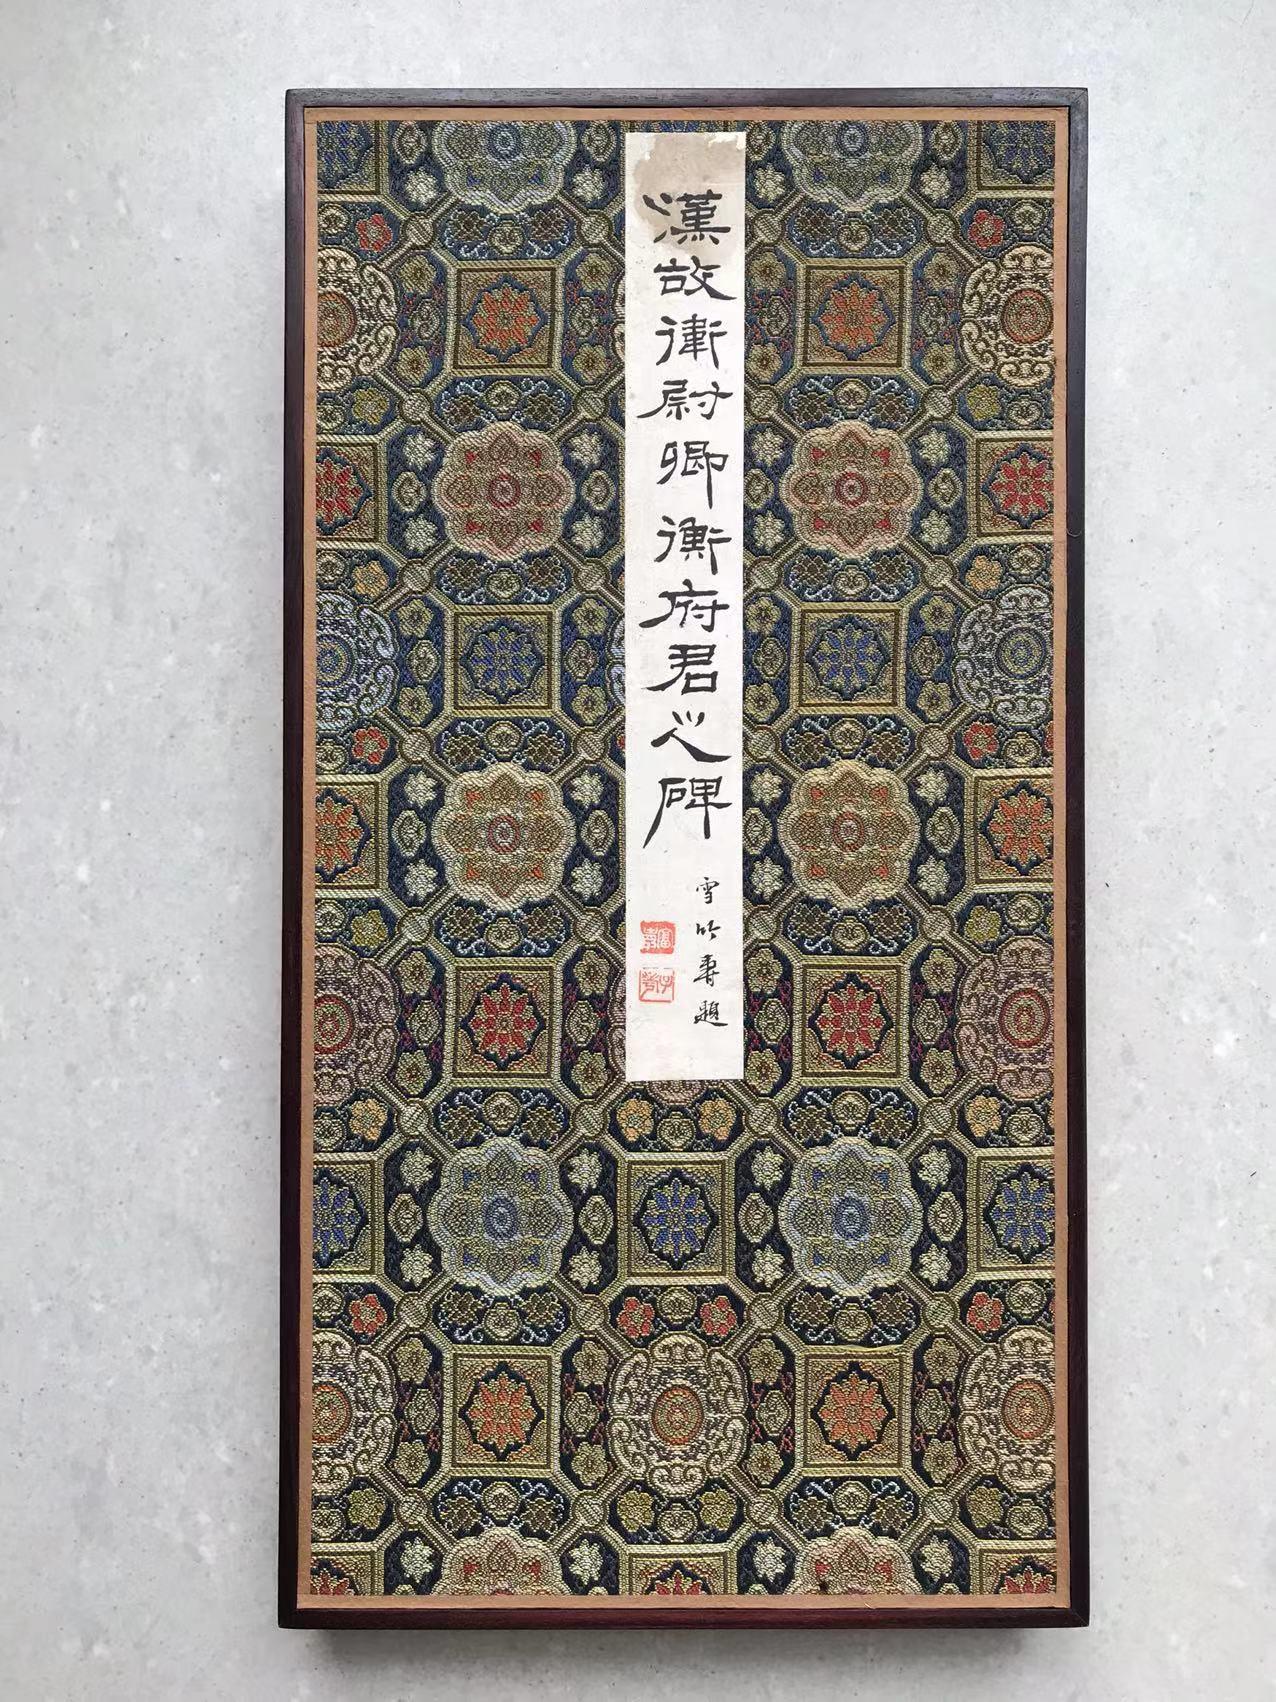 漢故衛尉卿衡府君之碑
雪竹壽題